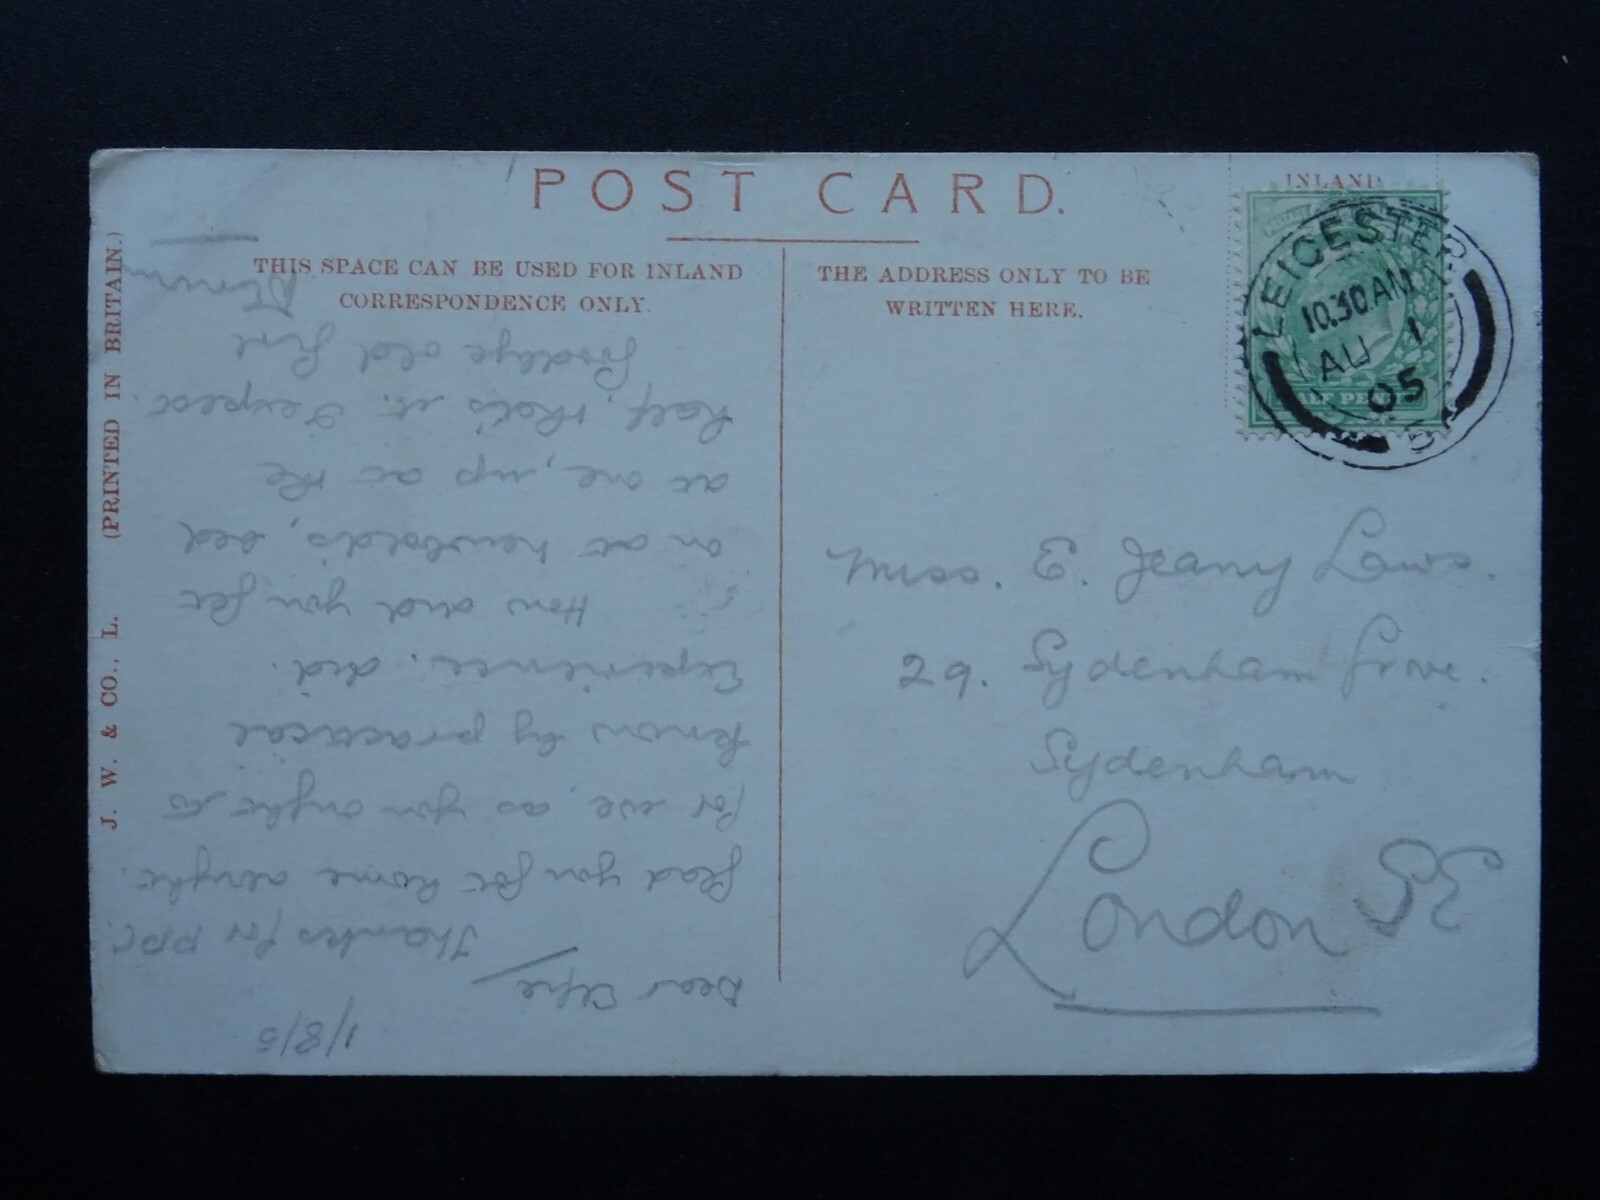 POST CARD.
THIS SPACE CAN BE USED FOR INLAND
CORRESPONDENCE ONLY.
THE ADDRESS ONLY TO BE
WRITTEN HERE.
INLAND
LEICESTER
10.30 AM
AU 1
05
HALF PENNY
J. W. & CO., L. (PRINTED IN BRITAIN.)
1/8/5
Dear Elsie
Thanks for PPC.
glad you got home alright.
for we, as you ought to
know by practical
Experience, did.
How did you get
on at, bed
at one, up at the
half, that's it. I expect.
Goodbye old girl
Miss. E. Jeany Laws.
29. Sydenham Grove.
Sydenham
London SE